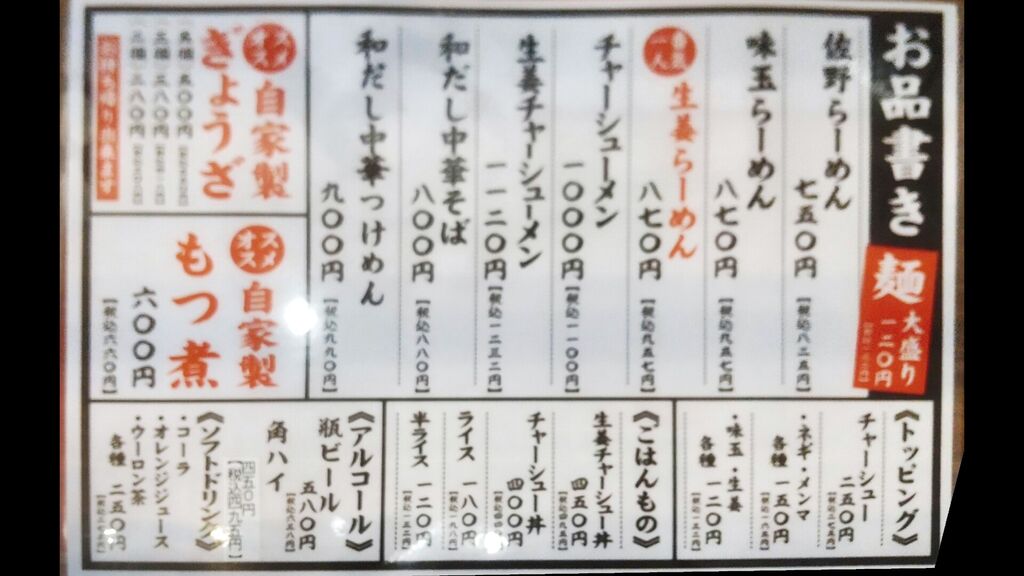 お品書き
麺 大盛り
一二〇円
佐野らーめん
七五〇円
【税込八二五円】
味玉らーめん
八七〇円
【税込九五七円】
人気
一番
生姜らーめん
八七〇円
【税込九五七円】
チャーシューメン
一〇〇〇円
【税込一一〇〇円】
生姜チャーシューメン
一一二〇円
【税込一二三二円】
和だし中華そば
八〇〇円
【税込八八〇円】
和だし中華つけめん
九〇〇円
【税込九九〇円】
オススメ
自家製
ぎょうざ
五〇〇円
三八〇円
二八〇円
お持ち帰り出来ます
オススメ
自家製
もつ煮
六〇〇円
【税込六六〇円】
《トッピング》
チャーシュー
二五〇円
【税込二七五円】
・ネギ・メンマ
各種 一五〇円
【税込一六五円】
・味玉・生姜
各種 一二〇円
【税込一三二円】
《ごはんもの》
生姜チャーシュー丼
四五〇円
【税込四九五円】
チャーシュー丼
四〇〇円
【税込四四〇円】
ライス 一八〇円
【税込一九八円】
半ライス 一二〇円
【税込一三二円】
《アルコール》
瓶ビール
五八〇円
【税込六三八円】
角ハイ
四五〇円
【税込四九五円】
《ソフトドリンク》
・コーラ
・オレンジジュース
・ウーロン茶
各種 二五〇円